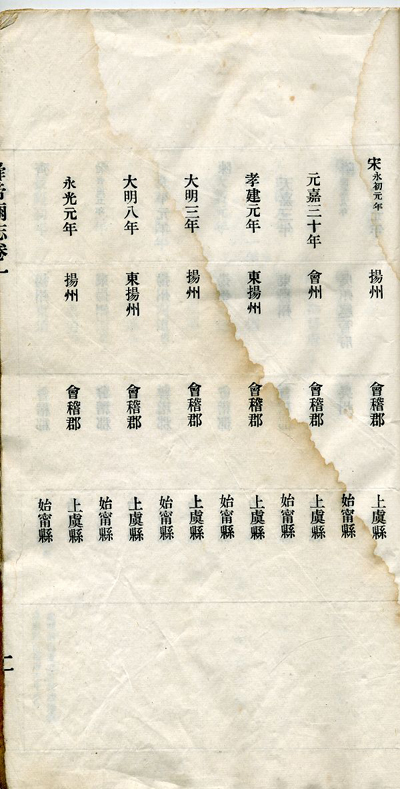 宋永初元年 揚州 會稽郡 上虞縣
始甯縣
元嘉三十年 會州 會稽郡 上虞縣
始甯縣
孝建元年 東揚州 會稽郡 上虞縣
始甯縣
大明三年 揚州 會稽郡 上虞縣
始甯縣
大明八年 東揚州 會稽郡 上虞縣
始甯縣
永光元年 揚州 會稽郡 上虞縣
始甯縣
志卷一 二